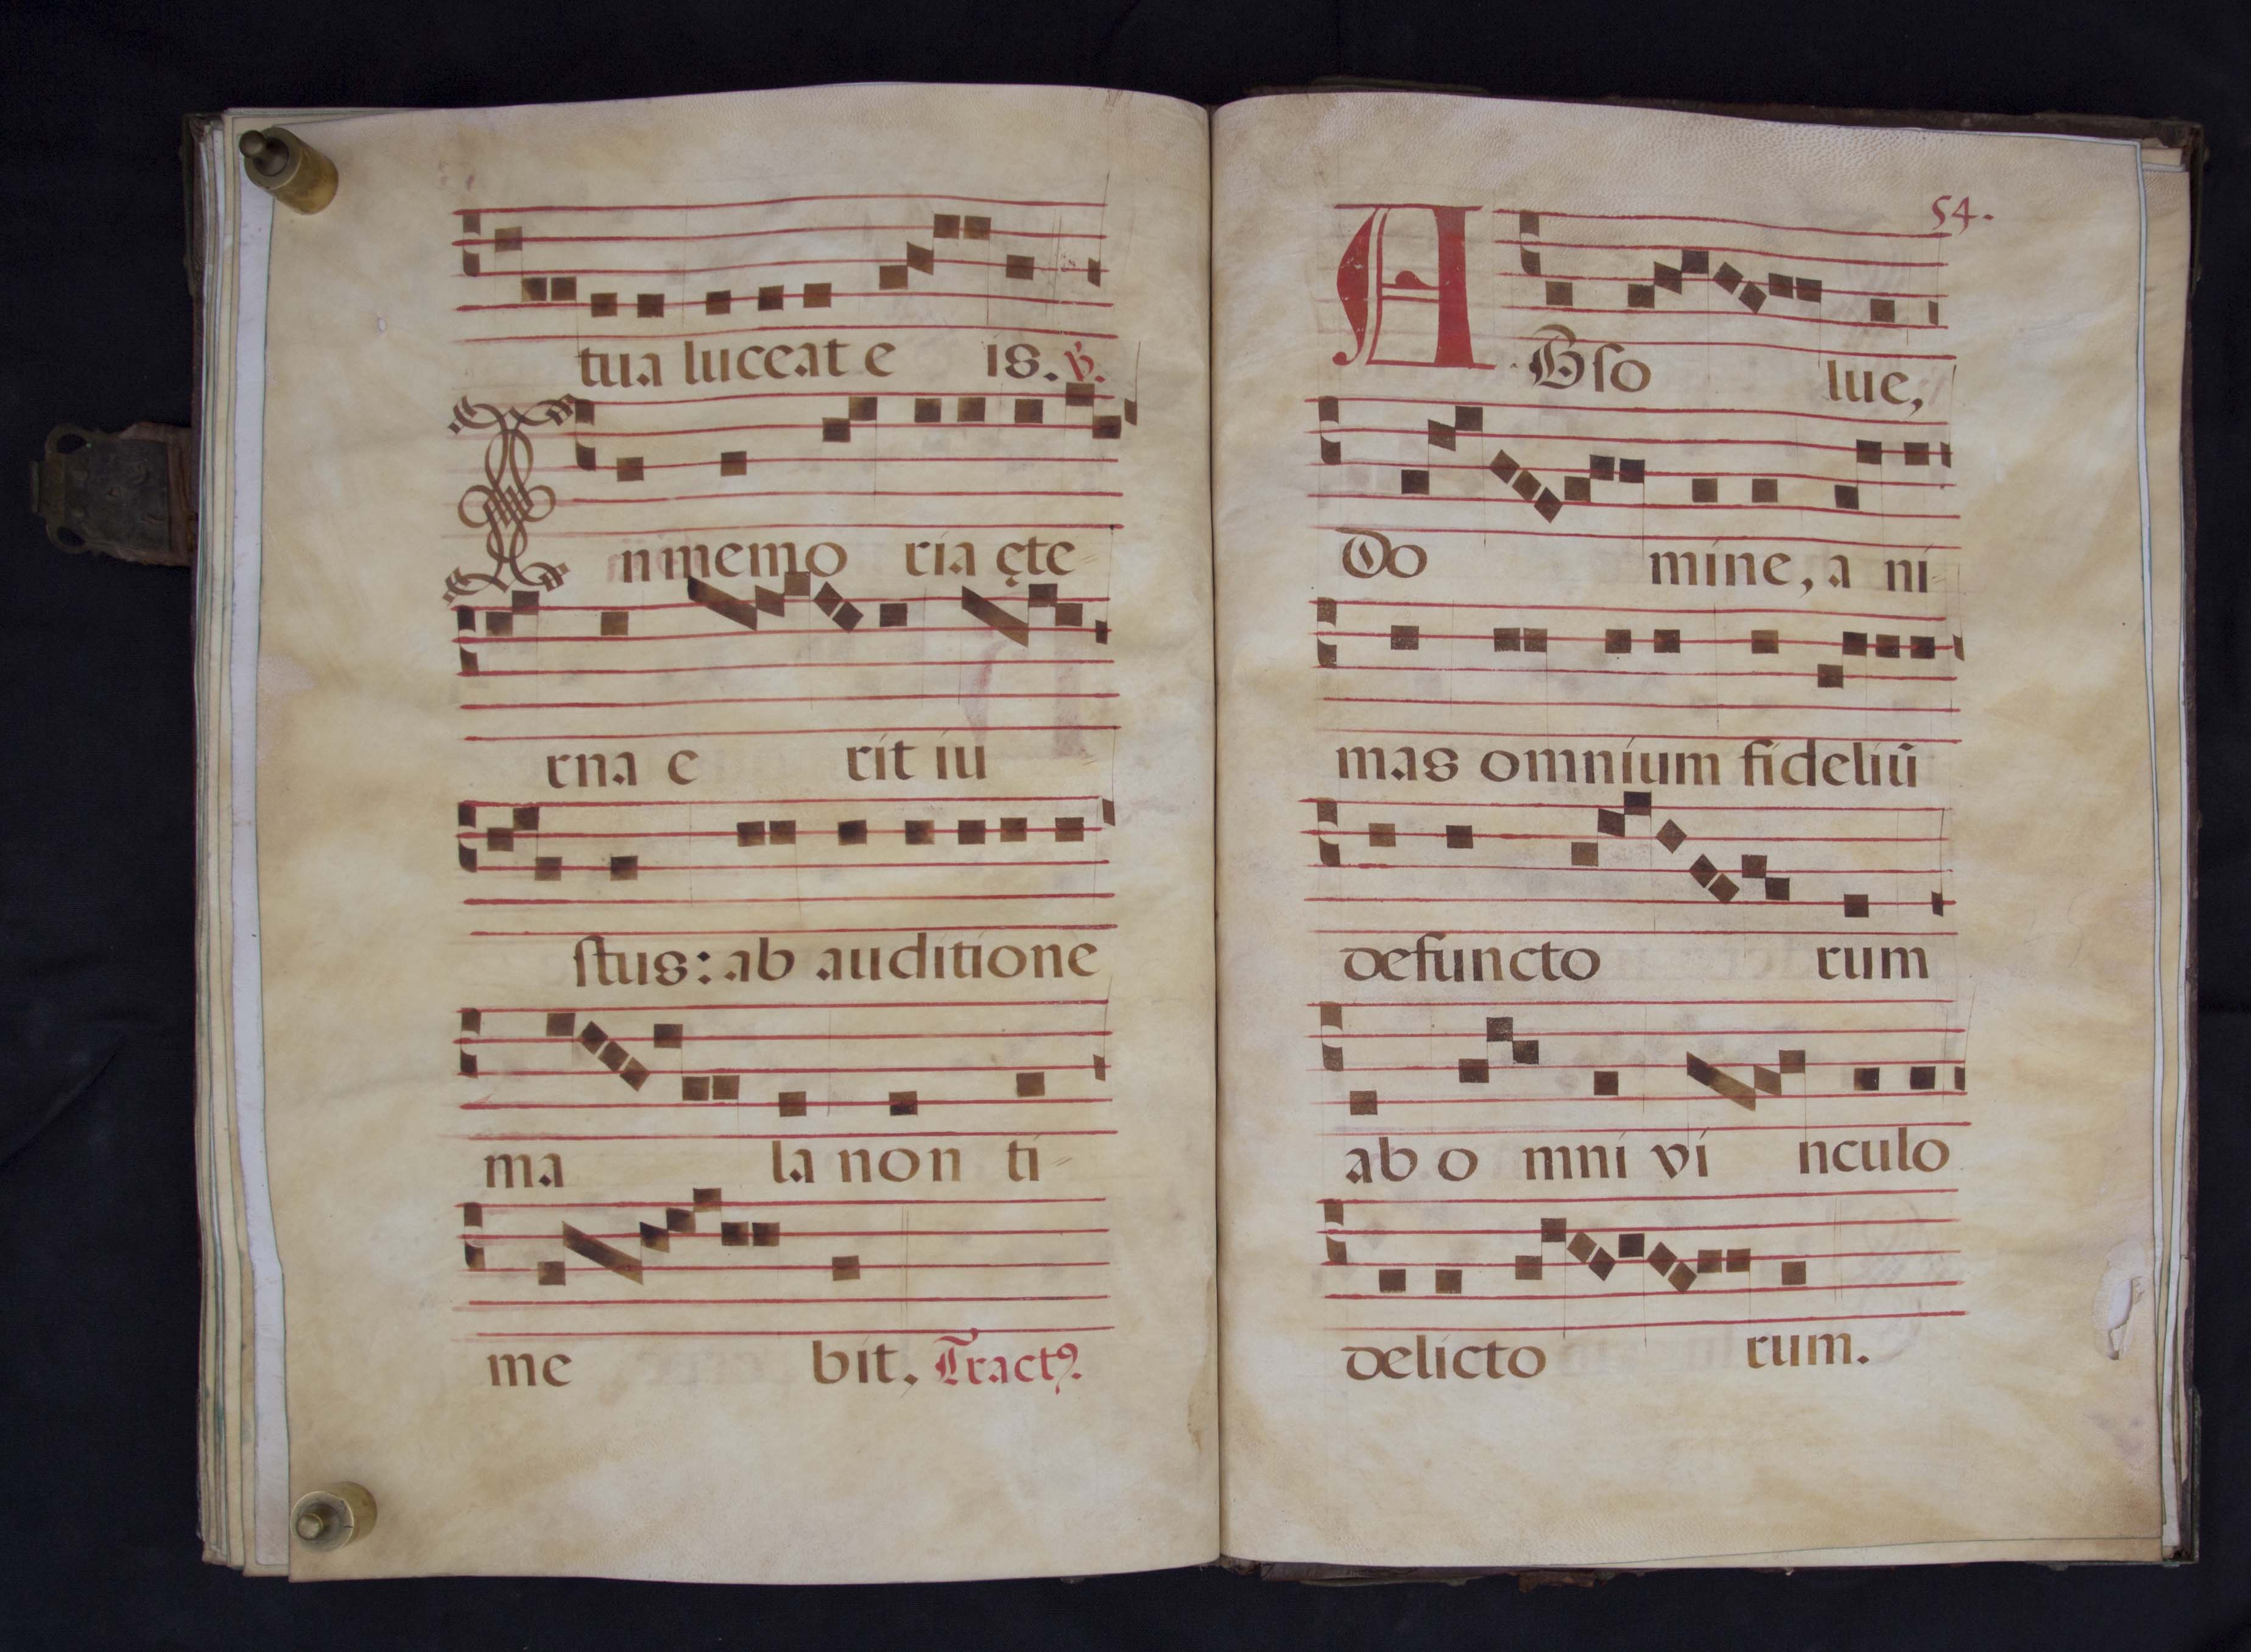 tua luceat e is. ℣.
In memo ria ęte-
rna e rit iu
ſtus: ab auditione
ma la non ti-
me bit. Tractꝰ.
54.
ABſo lue,
Do mine, a ni-
mas omnium fideliū
defuncto rum
ab o mni vi nculo
delicto rum.